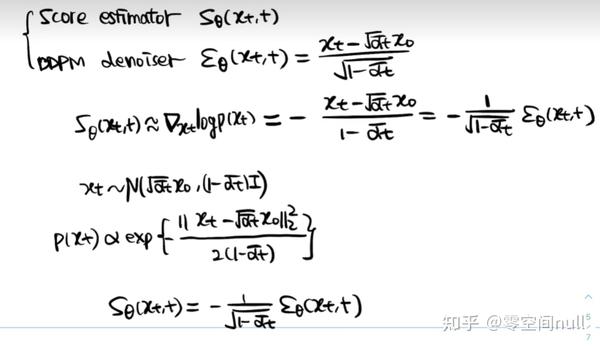 Score estimator Sθ(xt,t)
DDPM denoiser εθ(xt,t) = (xt-√ᾱt x0)/√(1-ᾱt)
Sθ(xt,t) ≈ ∇xt log p(xt) = - (xt-√ᾱt x0)/(1-ᾱt) = - 1/√(1-ᾱt) εθ(xt,t)
xt ~ N(√ᾱt x0, (1-ᾱt)I)
p(xt) ∝ exp{-||xt-√ᾱt x0||₂²/2(1-ᾱt)}
Sθ(xt,t) = - 1/√(1-ᾱt) εθ(xt,t)
知乎 @零空间null
5
7